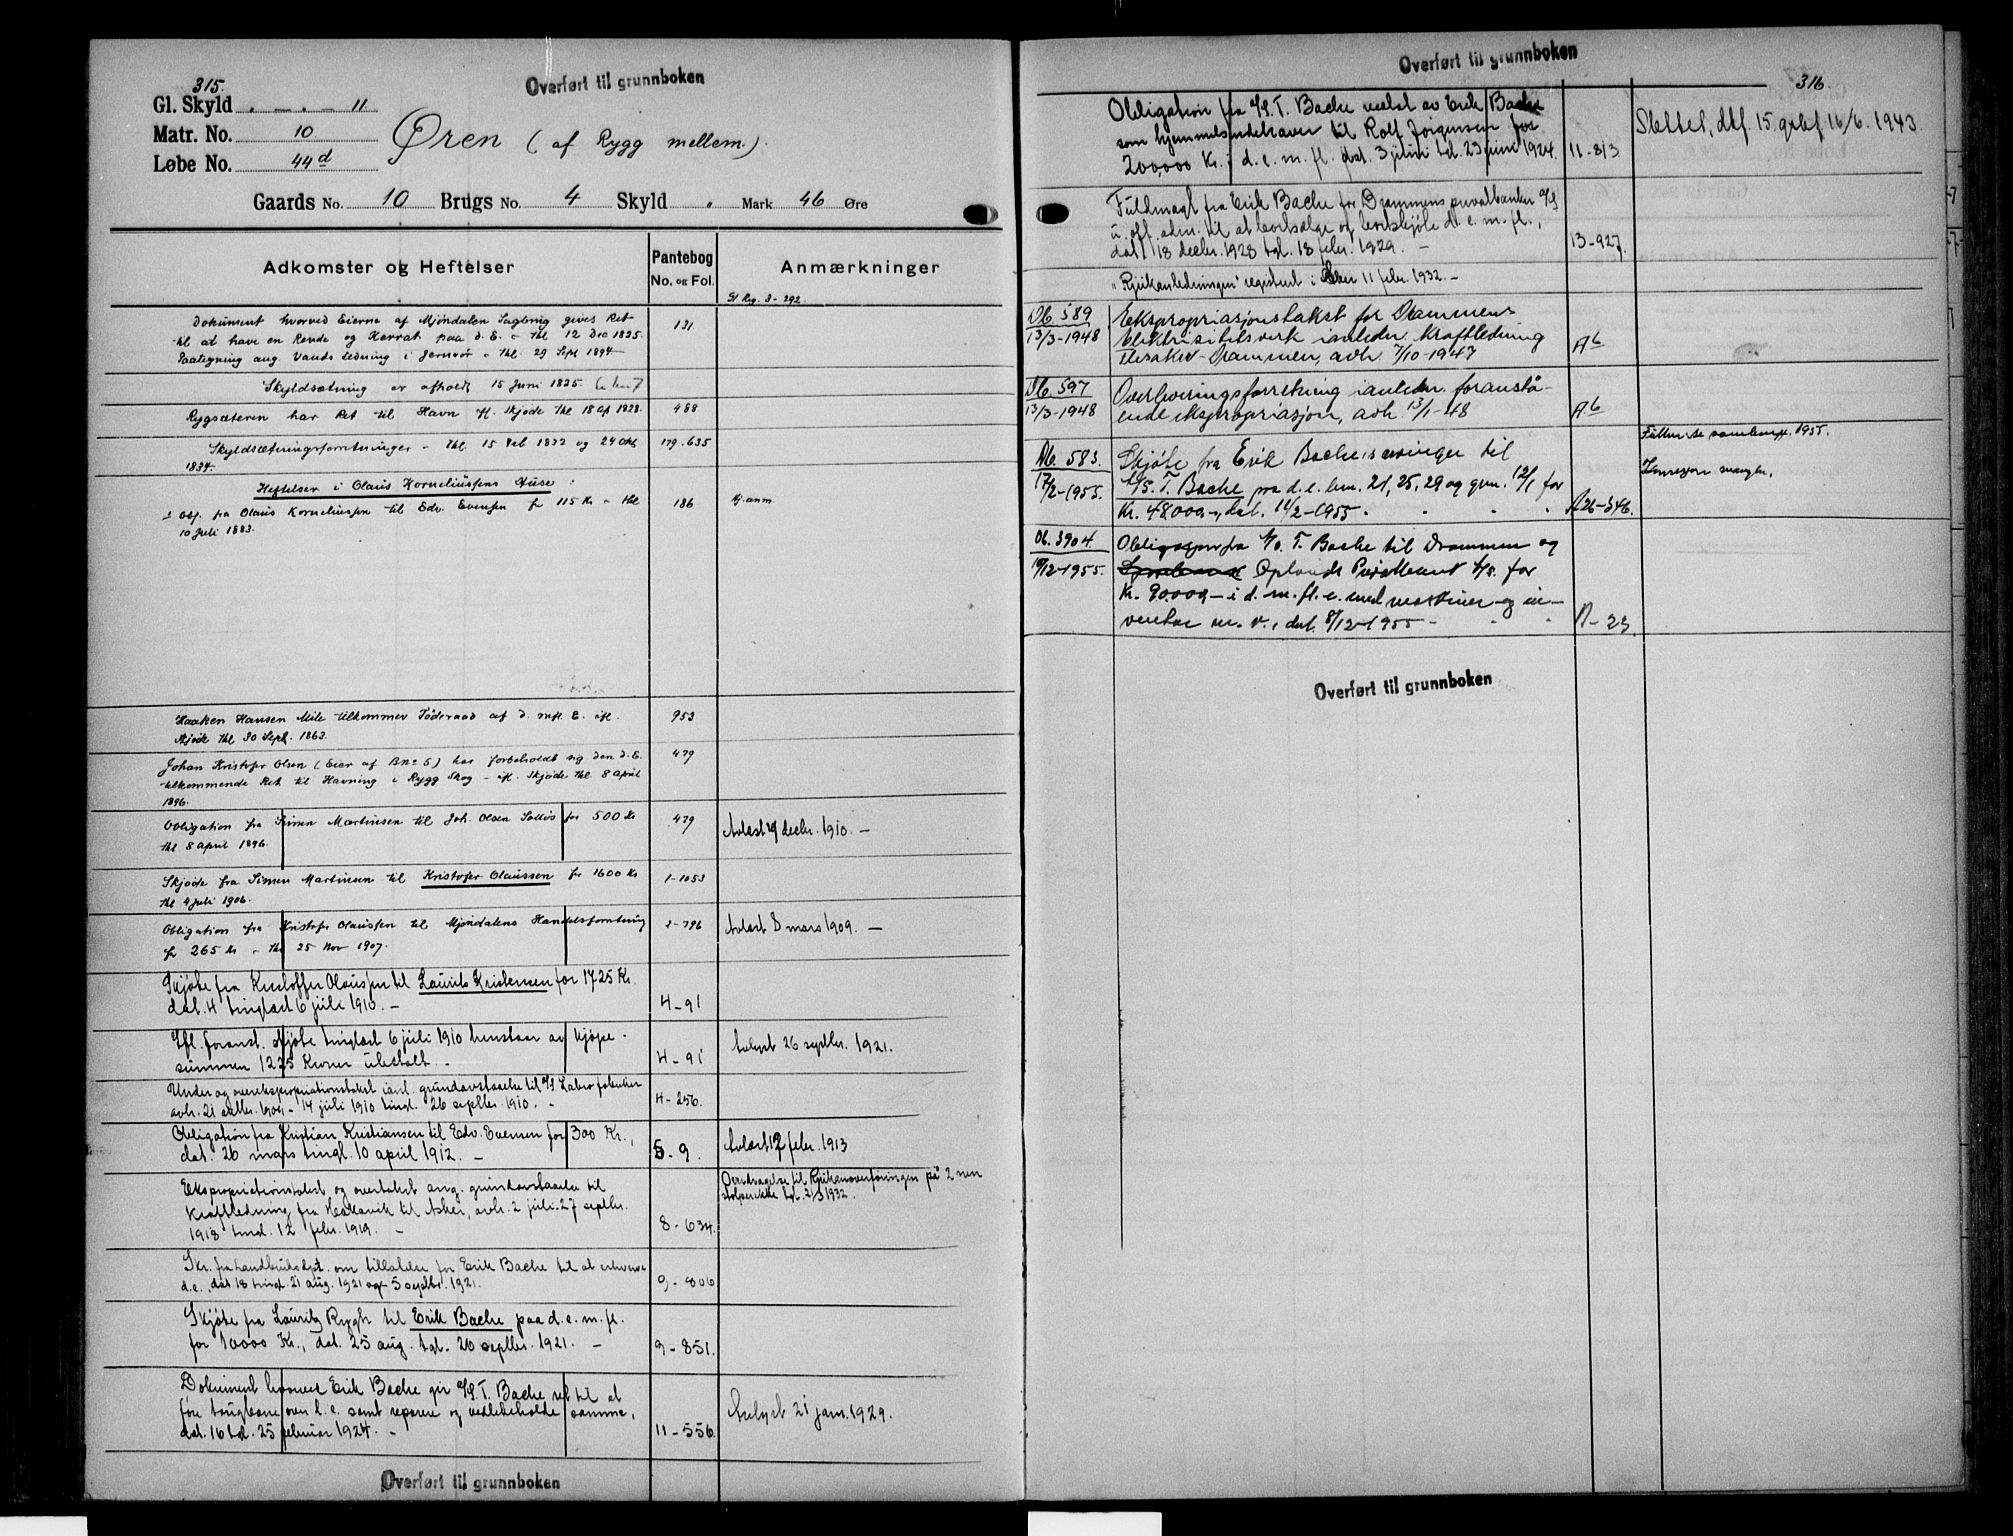 315.
Overført til grunnboken
Gl. Skyld . — . — 11
Matr. No. 10
Løbe No. 44d
Øren (af Rygg mellem).
Gaards No. 10 Brugs No. 4 Skyld . Mark 46 Øre
Adkomster og Heftelser
Pantebog
No. og Fol.
Anmærkninger
Gl Reg. 3-292
Dokument hvorved Eierne af Mjøndalen Sagbrug gives Ret
til at have en Rende og Kerrat paa d. E. – thl 12 Dec 1825. 131
Paategning ang. Vands ledning i Jernrør – thl. 29 Sept 1894
Skyldsætning er afholdt 15 Juni 1825.
Rygsæteren har Ret til Havn jf. Skjøde thl 18 Ap 1828. 488
Skyldsætningsforretninger – thl. 15 Feb 1832 og 24 Okt 179.635
1834.
Heftelser i Olaus Korneliussens Huse :
Obl. fra Olaus Korneliussen til Edv. Evensen for 115 Kr – thl 186 Kf. anm.
10 Juli 1883.
Haaken Hansen Mile tilkommer Föderaad af d. mfl. E. ifl. 953
skjöde thl 30 Sept. 1863.
Johan Kristofer Olsen (Eier af BNo 5) har forbeholdt sig den d. E. 479
tilkommende Ret til Havning i Rygg Skog – ifl. Skjøde thl. 8 April
1896.
Obligation fra Simen Martinsen til Joh. Olsen Solli for 500 Kr 479
thl 8 April 1896.
Avlæst 29 decbr. 1910. —
Skjøde fra Simen Martinsen til Kristofer Olaussen for 1600 Kr 1-1053
thl 4 juli 1906.
Obligation fra Kristofer Olaussen til Mjøndalens Handelsforretning 2-796
for 265 Kr – thl 25 Nov 1907.
Avlæst 8 mars 1909. —
Skjøte fra Kristoffer Olaussen til Laurits Kristensen for 1725 Kr.
dat. 4 tinglæst 6 juli 1910. — 4-91
Ifl. foranst. skjøte tinglæst 6 juli 1910 henstaar av kjøpe-
summen 1225 Kroner ubetalt. — 4-91
Avlyst 26 septbr. 1921.
Under og overekspropriationstakst i anl. grundavstaaelse til A/S Labro fabrikker
avh. 21 oktbr. 1909 - 14 juli 1910 tingl. 26 septbr. 1910. — 4-256.
Obligation fra Kristian Kristiansen til Edv. Evensen for 300 Kr.,
dat. 26 mars tingl. 10 april 1912. — 5-9.
Avlæst 12 febr. 1913
Ekspropriationstakst og overtakst ang. grundavstaaelse til
Kraftledning fra Hakavik til Asker, avh. 2 juli-27 septbr.
1918 tingl. 12 febr. 1919. — 8-634.
Overdragelse til Rjukanoverføringen på 2 nen
stolperekke tgl. 2/3 1932.
Skr. fra landbruksdpt. om tillatelse for Erik Bache til at erhverve
d.e., dat 18 tingl. 21 aug. 1921 og 5 septbr. 1921. 9-806
Skjøte fra Lauritz Rygh til Erik Bache paa d.e. m. fl.
for 10000 Kr., dat. 25 aug. tgl. 26 septbr. 1921. — 9-851.
Dokument hvorved Erik Bache gir A/S. T. Bache ret til at
føre taugbane over d.e. samt reparere og vedlikeholde samme,
dat. 16 tgl. 25 februar 1924. — 11-556
Avlyst 21 jan. 1929.
Overført til grunnboken
Overført til grunnboken
316
Obligation fra A/S. T. Bache vedtat av Erik Bache
som hjemmelsindehaver til Rolf Jörgensen for
200,000 Kr. i d.e. m. fl. dat. 3 juni tgl. 23 juni 1924. 11-813
Slettet, dbf. 15. gebf 16/6. 1943
Fuldmagt fra Erik Bache for Drammens privatbanken A/S
u. off. adm. til at bortsælge og bortskjøte d.e. m. fl.,
dat 18 decbr. 1928 tgl. 18 febr. 1929. — 13-927.
"Rjukanledningen" registrert i Oslo 11 febr. 1932. —
Db. 589
13/3-1948
Ekspropriasjonstakst for Drammens
Elektrisitetsverk i anledn. Kraftledning
Flesaker-Drammen, avh. 7/10-1947
A6
Db. 597
13/3-1948
Overleveringsforretning i anledn. foranstå-
ende ekspropriasjon, avh. 13/1-48
A.6
Db. 583.
17/2-1955.
Skjøte fra Erik Baches arvinger til
A/S. T. Bache pa d.e. bnr. 21, 25, 29 og gnr. 12/1 for
Kr. 48000,-, dat. 11/2-1955.
A26-346.
1955.
Db. 3904.
10/12-1955.
Obligasjon fra A/S. T. Bache til Drammen og
Oplands Privatbank A/S. for
Kr. 90000,- i d. m. fl. e. med maskiner og in-
ventar m. v., dat. 8/12-1955 —
A-23.
Overført til grunnboken